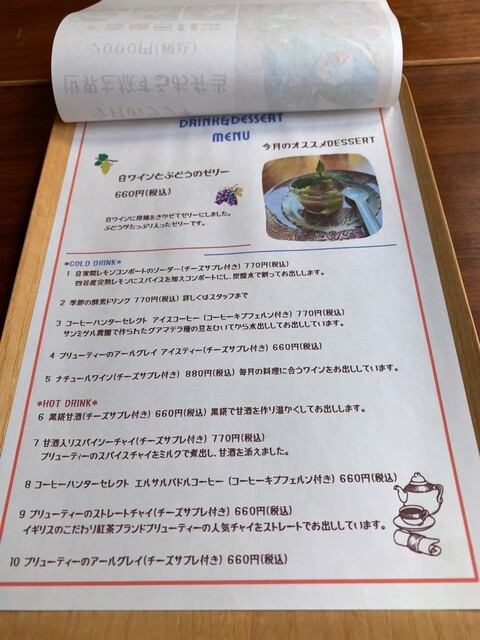 2000円(税込)
世界を旅するお弁当
今月のランチ
DRINK&DESSERT
MENU
今月のオススメDESSERT
白ワインとぶどうのゼリー
660円(税込)
白ワインに柑橘をきかせてゼリーにしました。
ぶどうがたっぷり入ったゼリーです。
*COLD DRINK*
1 自家製レモンコンポートのソーダー(チーズサブレ付き) 770円(税込)
四谷産完熟レモンにスパイスを加えコンポートにし、炭酸水で割ってお出しします。
2 季節の酵素ドリンク 770円(税込) 詳しくはスタッフまで
3 コーヒーハンターセレクト アイスコーヒー (コーヒーキプフェルン付き) 770円(税込)
サンミゲル農園で作られたグアマテラ種の豆をひいてから水出ししてお出ししています。
4 ブリューティーのアールグレイ アイスティー(チーズサブレ付き) 660円(税込)
5 ナチュールワイン(チーズサブレ付き) 880円(税込) 毎月の料理に合うワインをお出ししています。
*HOT DRINK*
6 黒糀甘酒(チーズサブレ付き) 660円(税込) 黒糀で甘酒を作り温かくしてお出します。
7 甘酒入りスパイシーチャイ(チーズサブレ付き) 770円(税込)
ブリューティーのスパイスチャイをミルクで煮出し、甘酒を添えました。
8 コーヒーハンターセレクト エルサルバドルコーヒー (コーヒーキプフェルン付き) 660円(税込)
9 ブリューティーのストレートチャイ(チーズサブレ付き) 660円(税込)
イギリスのこだわり紅茶ブランドブリューティーの人気チャイをストレートでお出ししています。
10 ブリューティーのアールグレイ(チーズサブレ付き) 660円(税込)